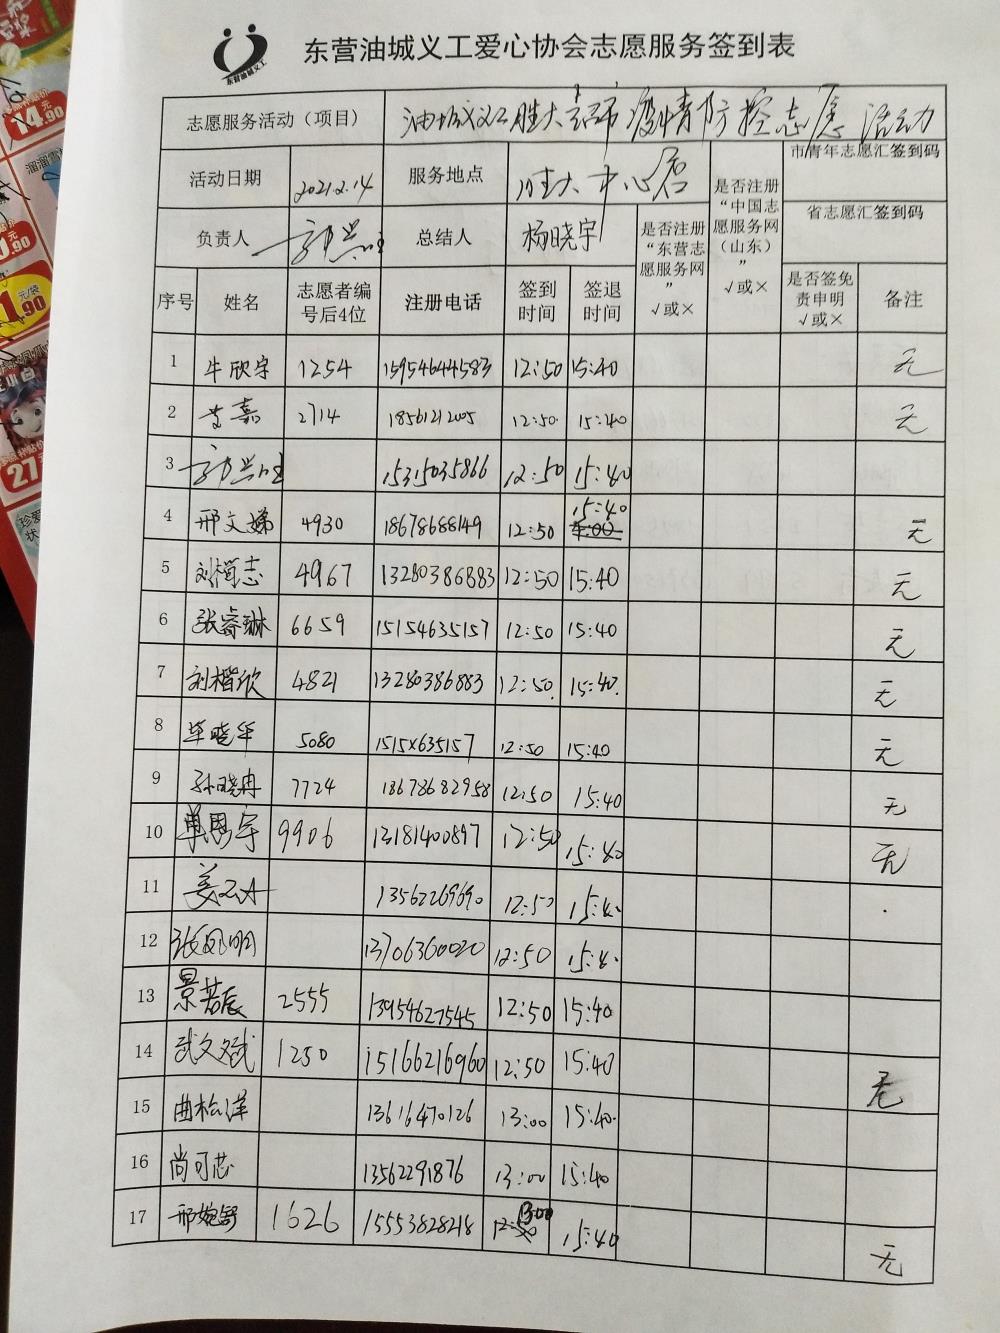 东营油城义工
东营油城义工爱心协会志愿服务签到表
志愿服务活动（项目） 油城义工胜大超市疫情防控志愿活动
活动日期 2021.2.14 服务地点 胜大中心店 是否注册“中国志愿服务网（山东）”√或× 市青年志愿汇签到码
负责人 总结人 杨晓宇 是否注册“东营志愿服务网”√或× 省志愿汇签到码
序号 姓名 志愿者编号后4位 注册电话 签到时间 签退时间 是否签免责申明√或× 备注
1 牛欣宇 1254 15954644583 12:50 15:40 无
2 李嘉 2714 18561212005 12:50 15:40 无
3 15315035866 12:50 15:40
4 邢文娣 4930 18678688149 12:50 15:40 无
5 刘恒志 4967 13280386883 12:50 15:40 无
6 张睿琳 6659 15154635157 12:50 15:40 无
7 刘楷欣 4821 13280386883 12:50 15:40 无
8 毕晓华 5080 1515X635157 12:50 15:40 无
9 孙晓冉 7724 18678682958 12:50 15:40 无
10 单恩宇 9906 13181400897 12:50 15:40 无
11 姜 13562269690 12:50 15:40
12 张凤明 13706360020 12:50 15:40
13 景若辰 2555 13954627545 12:50 15:40
14 武文斌 1250 15166216960 12:50 15:40 无
15 曲松洋 13616470126 13:00 15:40
16 尚可芯 13562291876 13:00 15:40
17 邢婉舒 1626 15553828218 12:50 13:00 15:40 无
14.90
元
1.90
元/袋
27